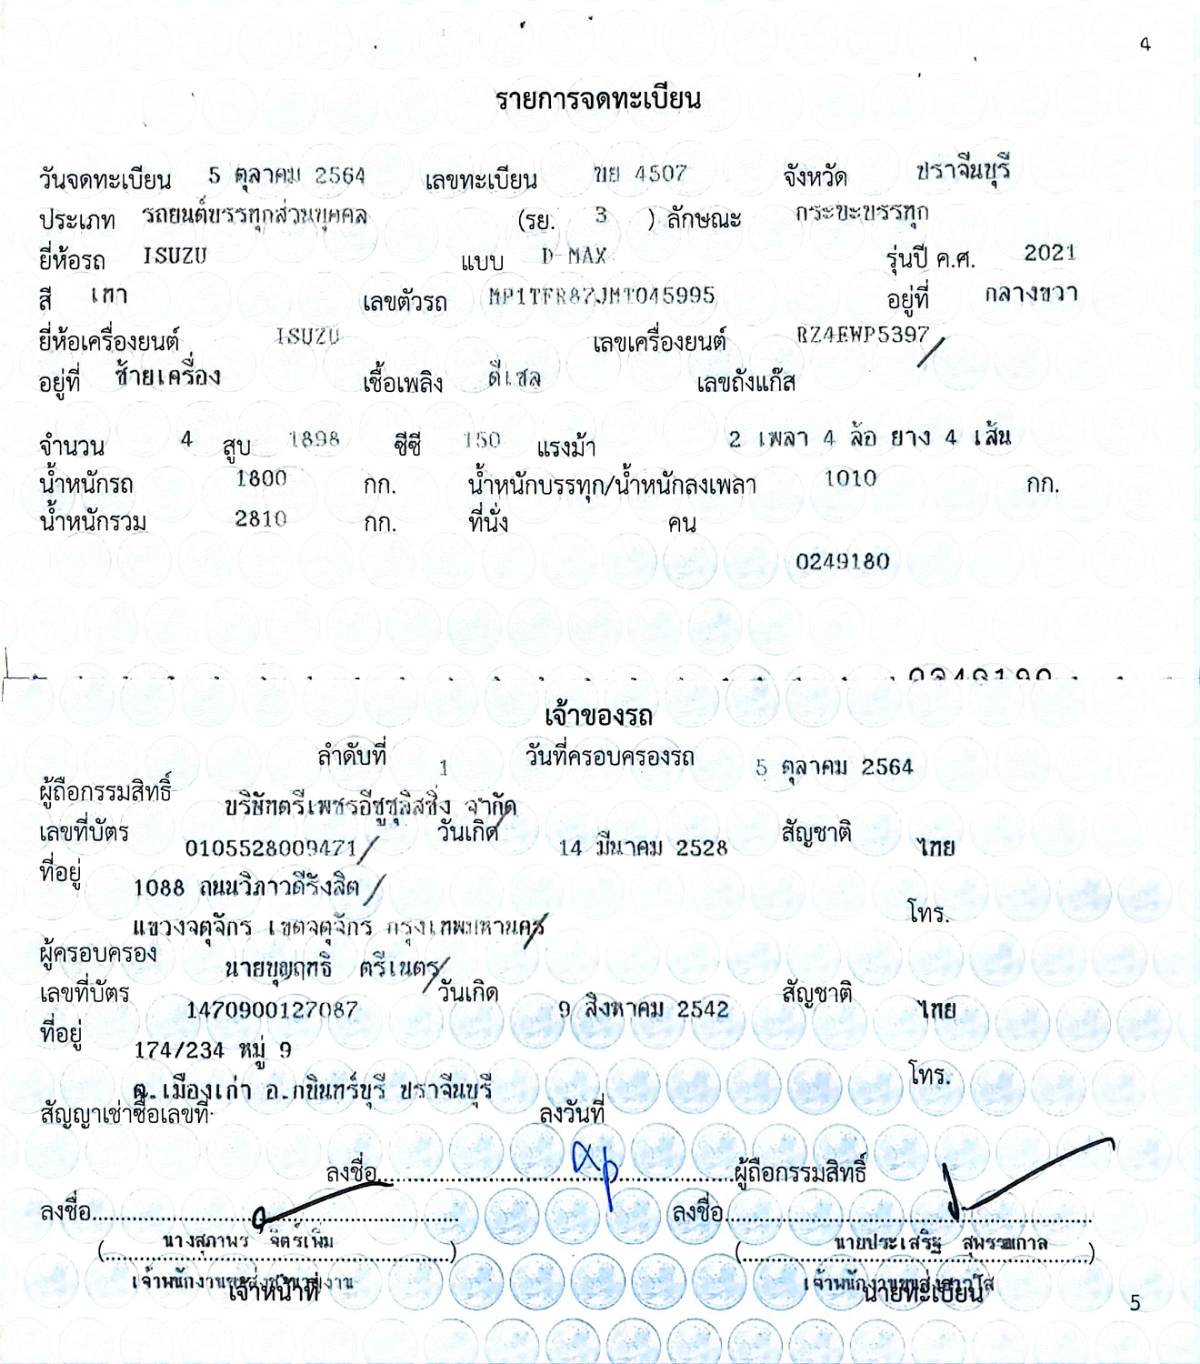 4
รายการจดทะเบียน
วันจดทะเบียน 5 ตุลาคม 2564 เลขทะเบียน ขย 4507 จังหวัด ปราจีนบุรี
ประเภท รถยนต์บรรทุกส่วนบุคคล (รย. 3 ) ลักษณะ กระบะบรรทุก
ยี่ห้อรถ ISUZU แบบ D-MAX รุ่นปี ค.ศ. 2021
สี เทา เลขตัวรถ MP1TFR87JMT045995 อยู่ที่ กลางขวา
ยี่ห้อเครื่องยนต์ ISUZU เลขเครื่องยนต์ RZ4EWP5397
อยู่ที่ ซ้ายเครื่อง เชื้อเพลิง ดีเซล เลขถังแก๊ส
จำนวน 4 สูบ 1898 ซีซี 150 แรงม้า 2 เพลา 4 ล้อ ยาง 4 เส้น
น้ำหนักรถ 1800 กก. น้ำหนักบรรทุก/น้ำหนักลงเพลา 1010 กก.
น้ำหนักรวม 2810 กก. ที่นั่ง คน
0249180
0249180
เจ้าของรถ
ลำดับที่ 1 วันที่ครอบครองรถ 5 ตุลาคม 2564
ผู้ถือกรรมสิทธิ์ บริษัทตรีเพชรอีซูซุลิสซิ่ง จำกัด
เลขที่บัตร 0105528009471 วันเกิด 14 มีนาคม 2528 สัญชาติ ไทย
ที่อยู่ 1088 ถนนวิภาวดีรังสิต
แขวงจตุจักร เขตจตุจักร กรุงเทพมหานคร โทร.
ผู้ครอบครอง นายบุญฤทธิ์ ตรีเนตร
เลขที่บัตร 1470900127087 วันเกิด 9 สิงหาคม 2542 สัญชาติ ไทย
ที่อยู่ 174/234 หมู่ 9
ต.เมืองเก่า อ.กบินทร์บุรี ปราจีนบุรี โทร.
สัญญาเช่าซื้อเลขที่ ลงวันที่
ลงชื่อ ผู้ถือกรรมสิทธิ์
ลงชื่อ ลงชื่อ
(นางสุภาพร จิตร์เพิ่ม) (นายประเสริฐ สุพรรณกาล)
เจ้าพนักงานขนส่งชำนาญงาน เจ้าพนักงานขนส่งอาวุโส
เจ้าหน้าที่ นายทะเบียน
5